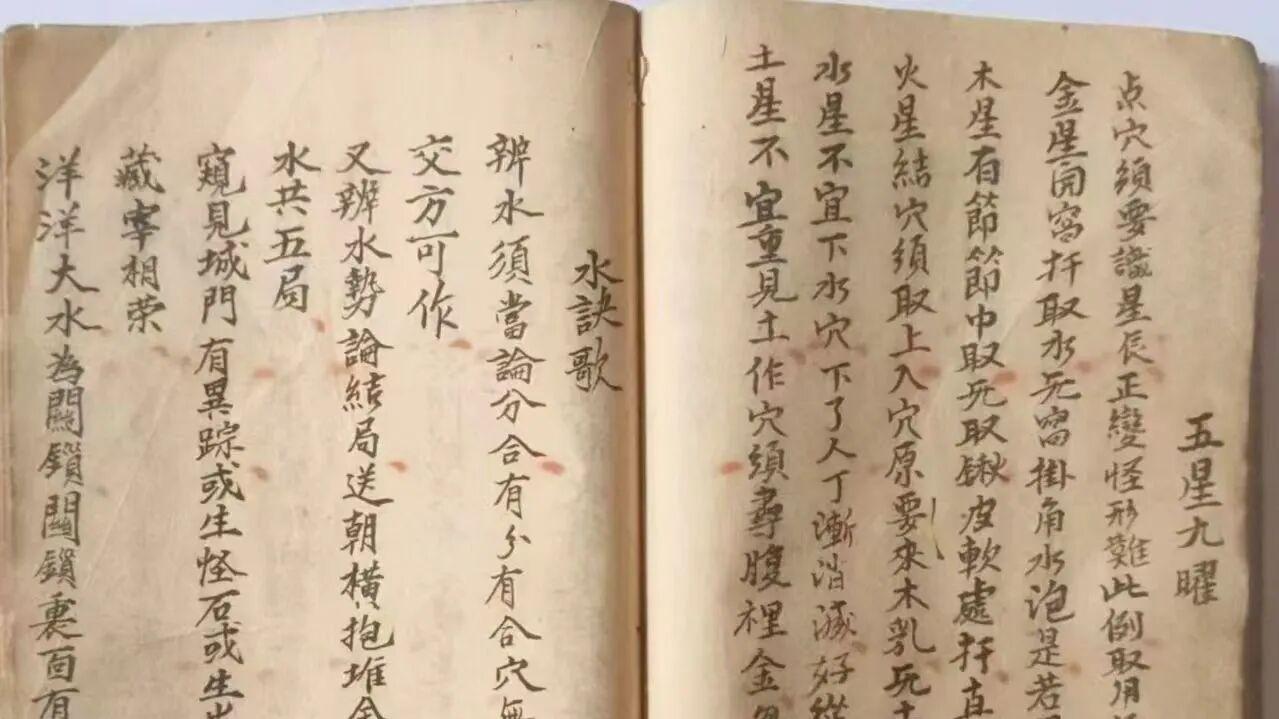 五星九曜
点穴須要識星辰正變怪形難此例取用
金星開窩扦取水无窩掛角水泡是若
木星有節節中取无取鍬皮軟處扦直
火星結穴須取上入穴原要來木乳无土
水星不宜下水穴下了人丁漸消滅好從
土星不宜重見土作穴頭尋腹裡金魚
水訣歌
辨水須當論分合有分有合穴無
交方可作
又辨水勢論結局送朝橫抱堆金
水共五局
窺見城門有異踪或生怪石或生出
藏宰相荣
洋洋大水為關鎖關鎖裏面有